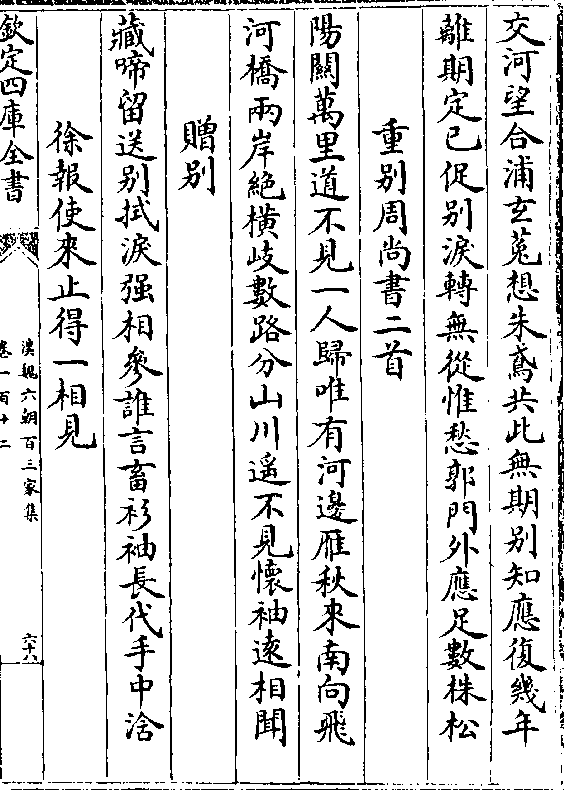 交河望合浦玄菟想朱鳶共此無期别知應復幾年
離期定已促别淚轉無從惟愁郭門外應足數株松
重别周尚書二首
陽關萬里道不見一人歸唯有河邊雁秋來南向飛
河橋兩岸絶横岐數路分山川遥不見懷袖遠相聞
贈别
藏啼留送别拭淚强相參誰言畜衫袖長代手中浛
徐報使來止得一相見
欽定四庫全書
漢魏六朝百三家集
卷一百十二
六十八